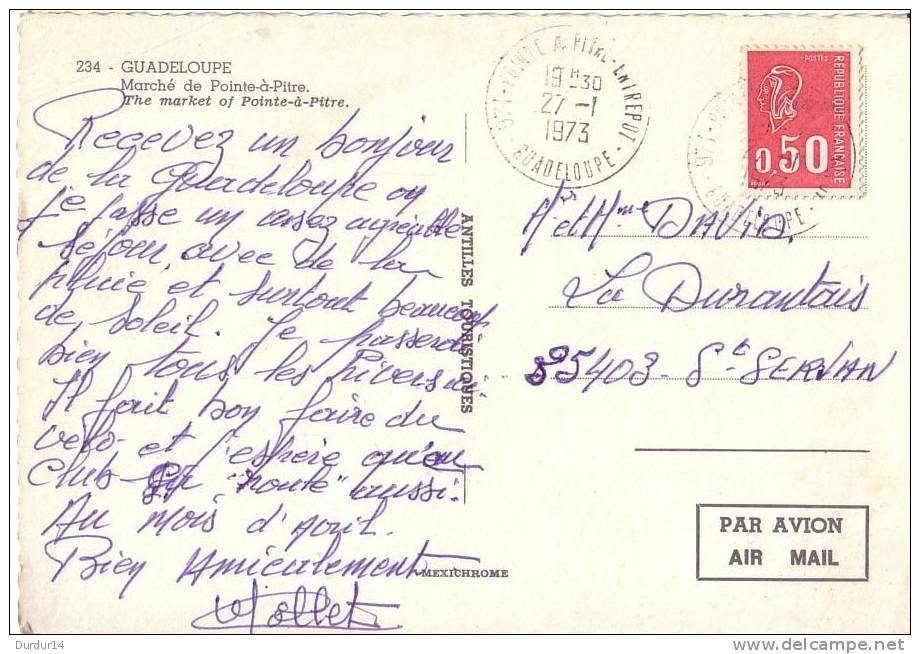 234 - GUADELOUPE
Marché de Pointe-à-Pitre.
The market of Pointe-à-Pitre.
Recevez un bonjour
de la Guadeloupe ou
je passe un assez agréable
séjour, avec de la
pluie, et surtout beaucoup
de soleil. Je passerai
bien tous les hivers ici
Il fait bon faire du
vélo- et j'espère qu'au
Club "route" aussi.
Au mois d'Avril.
Bien Amicalement
ANTILLES TOURISTIQUES
MEXICHROME
971 - POINTE A PITRE-ENTREPOT
19H30
27 -1
1973
GUADELOUPE
POSTES
REPUBLIQUE FRANÇAISE
0,50
M et Mme DAVID.
La Durantais
35403 - St SERVAN
PAR AVION
AIR MAIL
Durdur14
www.delcampe.net